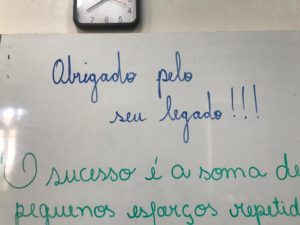 Obrigado pelo
seu legado!!!
O sucesso é a soma de
pequenos esforços repetid